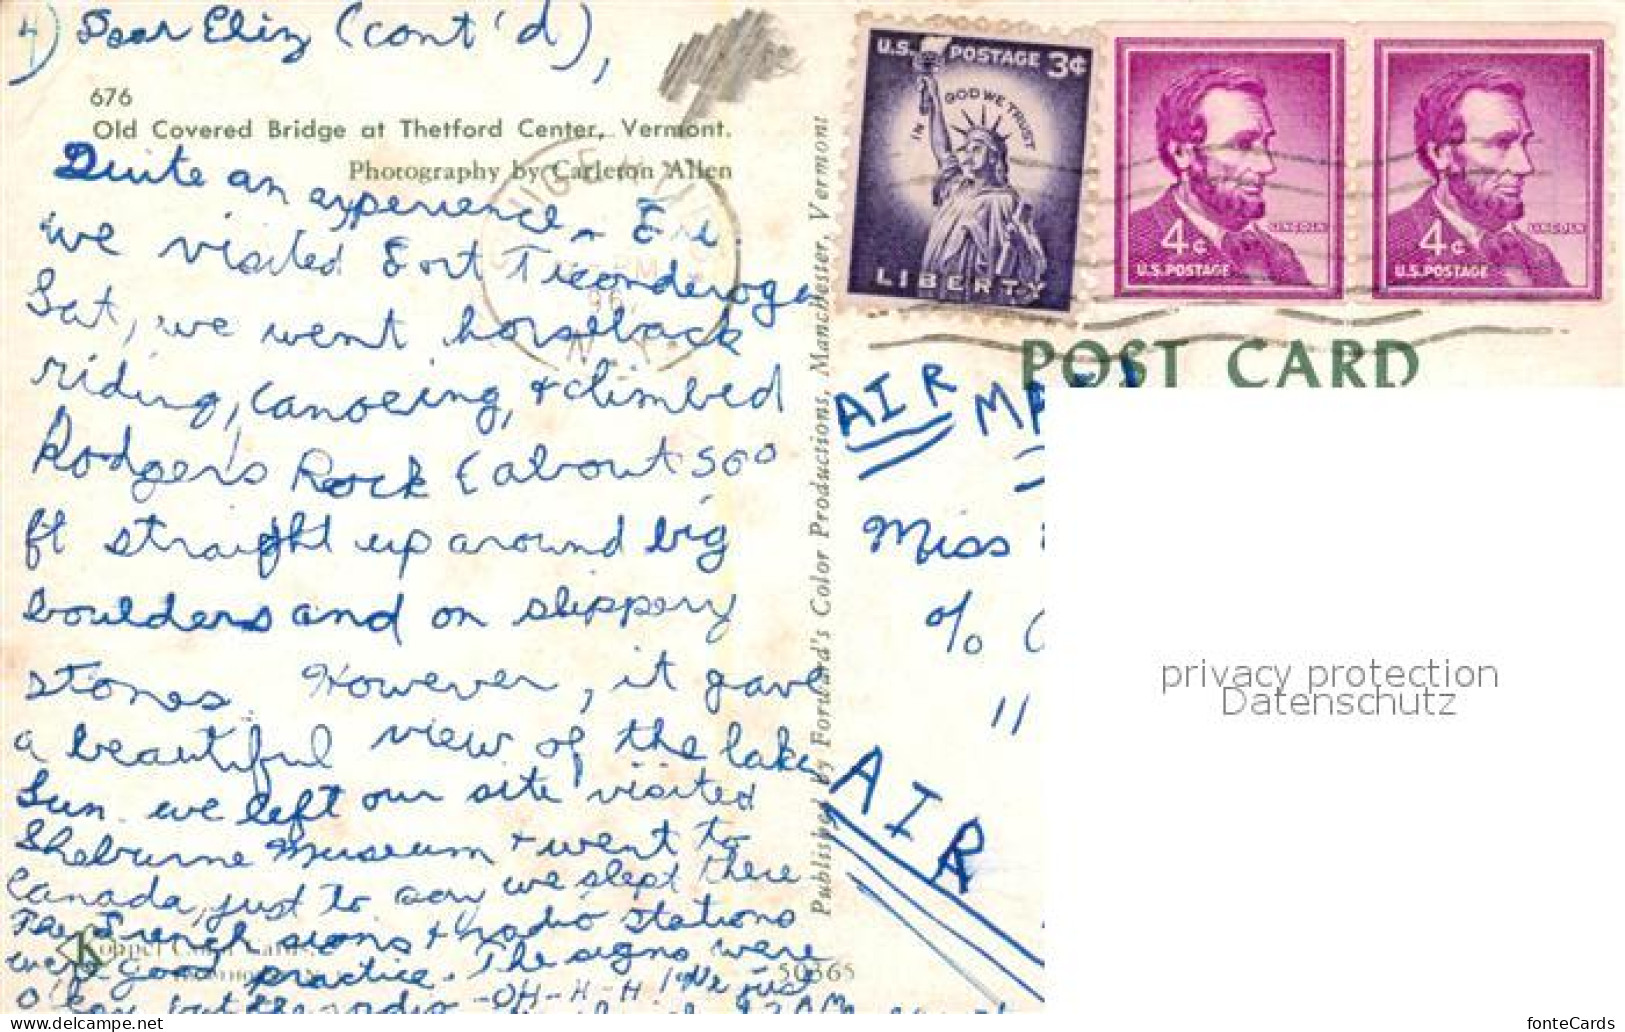 4) Dear Eliz (cont'd),
676
Old Covered Bridge at Thetford Center, Vermont.
Photography by Carleton Allen
Quite an experience - Fri
we visited Fort Ticonderoga
Sat, we went horseback
riding, canoeing, + climbed
Rodgers Rock (about 500
ft straight up around big
boulders and on slippery
stones. However, it gave
a beautiful view of the lake
Sun. we left our site visited
Sheburne Museum + went to
Canada, just to say we slept there
The French signs + radio stations
were good practice. The signs were
okay, but the radio -OH-H-H! We just
Koppel Color Cards
50365
Published by Forward's Color Productions, Manchester, Vermont
U.S. POSTAGE 3¢
IN GOD WE TRUST
LIBERTY
4¢
LINCOLN
U.S. POSTAGE
4¢
LINCOLN
U.S. POSTAGE
N.Y.
POST CARD
AIR MA
Miss
% C
"
AIR
privacy protection
Datenschutz
https://www.delcampe.net
fonteCards